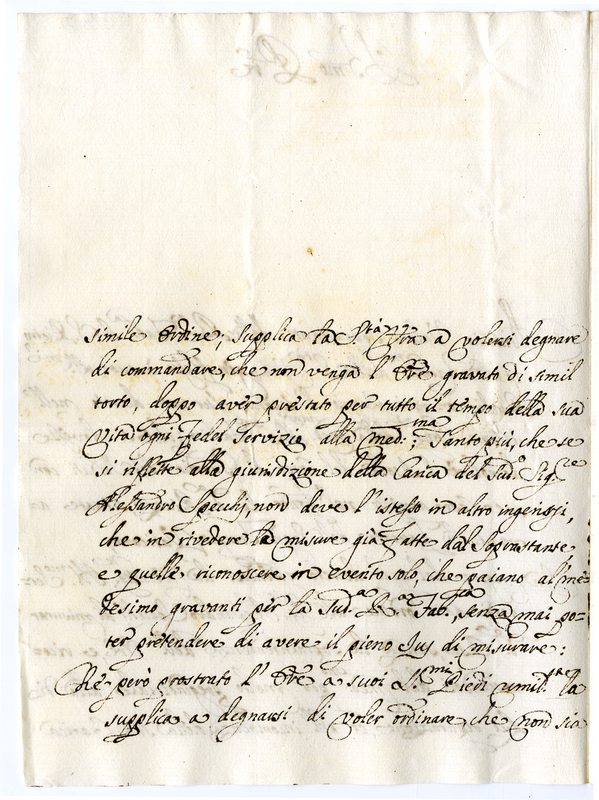 simile Ordine; supplica la S.tà V̄ra a volersi degnare
di commandare, che non venga l' Ore gravato di simil
torto, doppo aver prestato per tutto il tempo della sua
Vita ogni fedel Servizio alla med:ma; Tanto più, che se
si riflette alla giurisdizione della Carica del Sud.o Sig.re
Alessandro Specchj, non deve l' istesso in altro ingerirsi,
che in rivedere la misure già fatte dal Soprastante,
e quelle riconoscere in evento solo, che paiano al me=
desimo gravanti per la Sud.a R.a Fab.ca, senza mai po=
ter pretendere di avere il pieno Jus di misurare:
Re però prostrato l' Ore a suoi S.mi Piedi umil.te la
supplica a degnarsi di voler ordinare, che non sia